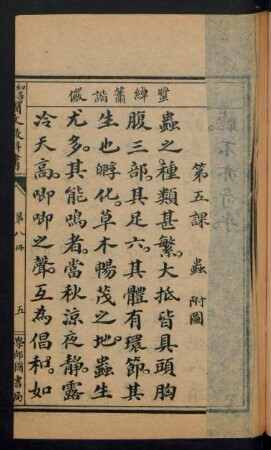 第五課 蟲 附圖
蟲之種類甚繁。大抵皆具頭胸
腹三部。其足六。其體有環節。其
生也孵化。草木暢茂之地。蟲生
尤多。其能鳴者。當秋涼夜靜。露
冷天高。唧唧之聲。互為倡和。如
簫諧
國文教科書 第八冊 五 學部圖書局